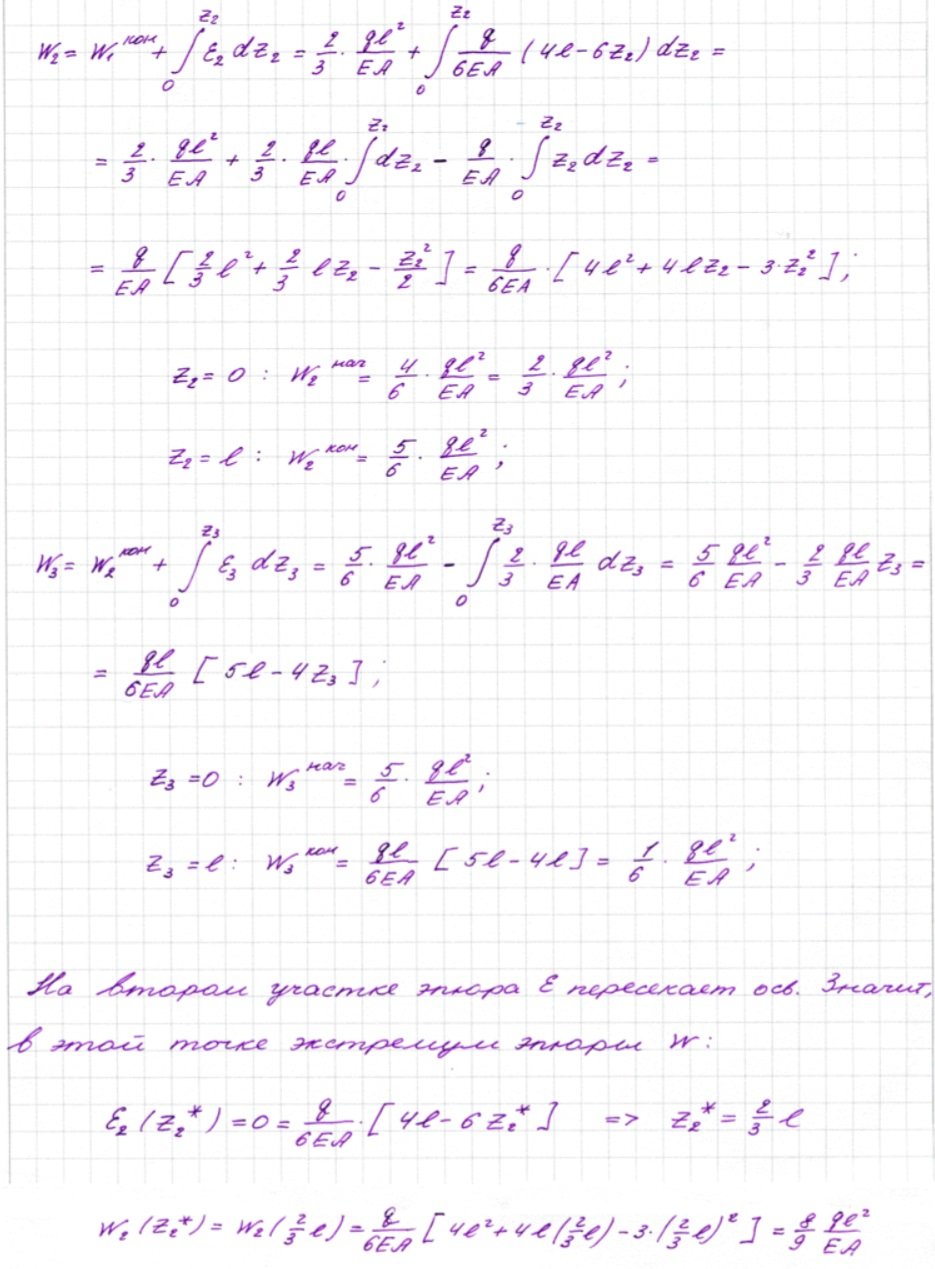 W₂ = W₁ᵏᵒⁿ + ∫₀^{z₂} ε₂ dz₂ = 2/3 · ql²/EA + ∫₀^{z₂} q/6EA (4l - 6z₂) dz₂ =
= 2/3 · ql²/EA + 2/3 · ql/EA · ∫₀^{z₂} dz₂ - q/EA · ∫₀^{z₂} z₂ dz₂ =
= q/EA [2/3 l² + 2/3 l z₂ - z₂²/2] = q/6EA · [4l² + 4l z₂ - 3·z₂²];
z₂ = 0 : W₂^{нач} = 4/6 · ql²/EA = 2/3 · ql²/EA;
z₂ = l : W₂^{кон} = 5/6 · ql²/EA;
W₃ = W₂^{кон} + ∫₀^{z₃} ε₃ dz₃ = 5/6 · ql²/EA - ∫₀^{z₃} 2/3 · ql/EA dz₃ = 5/6 ql²/EA - 2/3 ql/EA z₃ =
= ql/6EA [5l - 4z₃];
z₃ = 0 : W₃^{нач} = 5/6 · ql²/EA;
z₃ = l : W₃^{кон} = ql/6EA [5l - 4l] = 1/6 · ql²/EA;
На втором участке эпюра ε пересекает ось. Значит,
в этой точке экстремум эпюры W:
ε₂(z₂*) = 0 = q/6EA · [4l - 6z₂*] => z₂* = 2/3 l
W₂(z₂*) = W₂(2/3 l) = q/6EA [4l² + 4l(2/3 l) - 3·(2/3 l)²] = 8/9 ql²/EA